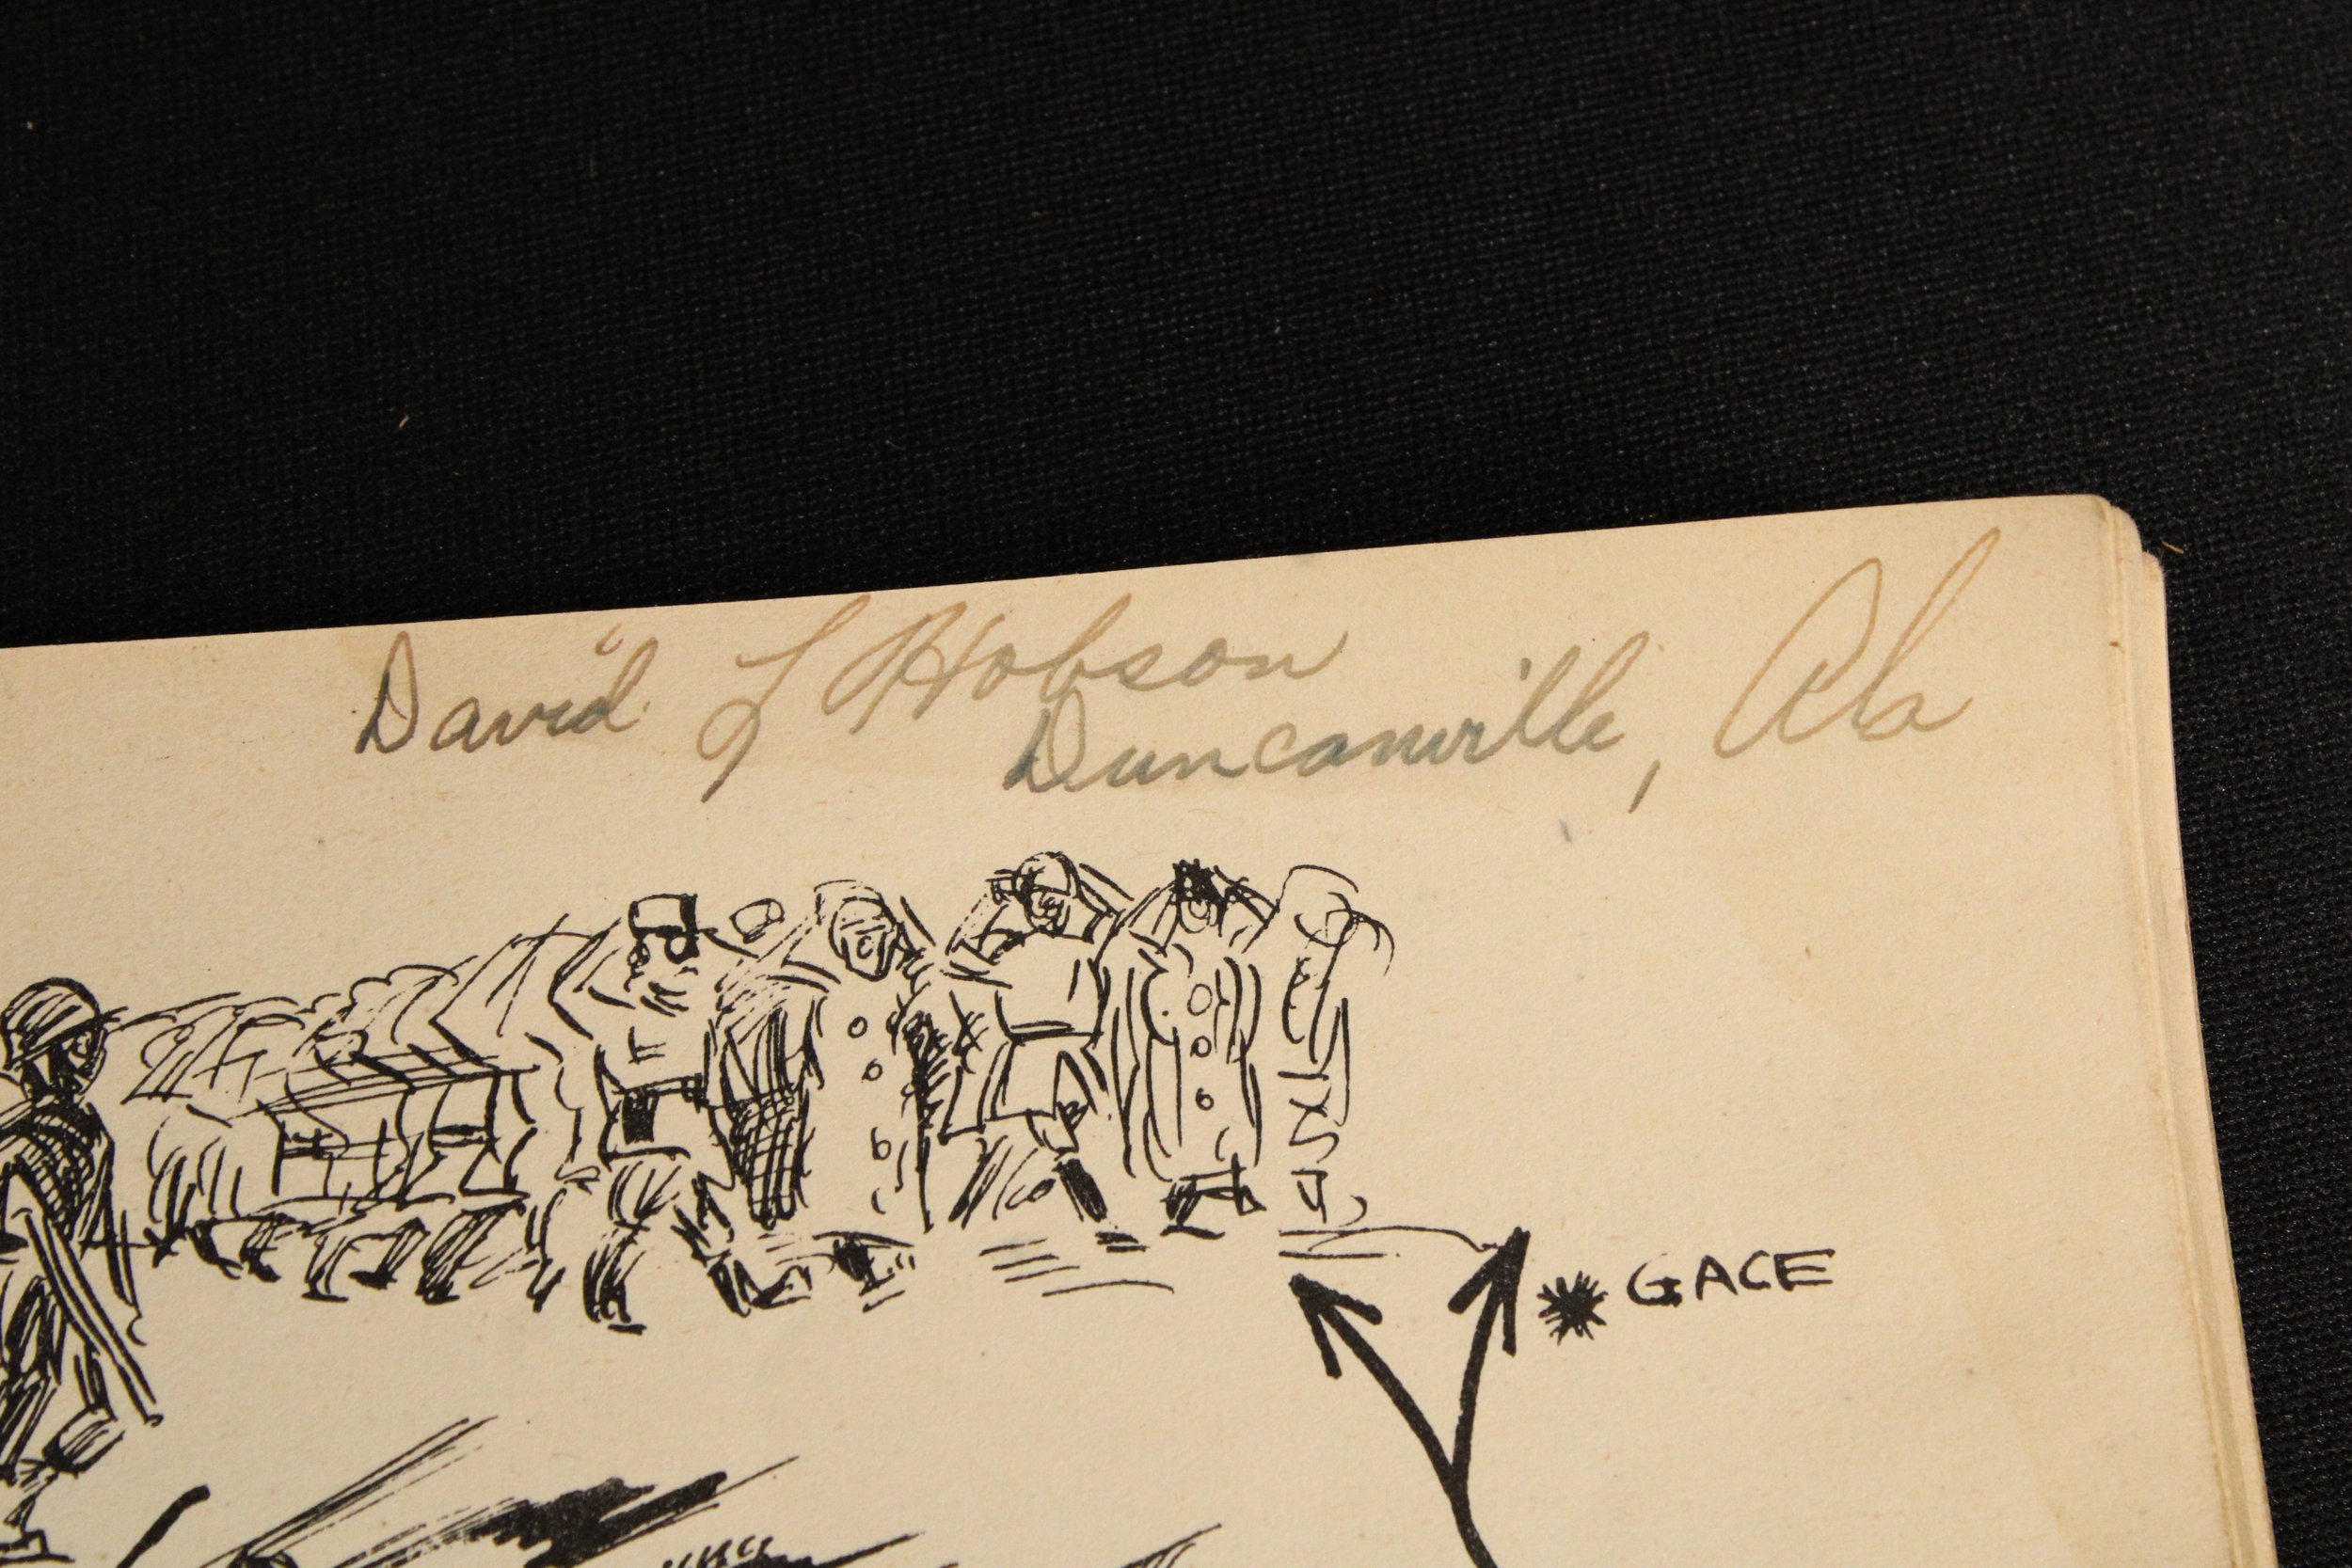 David L Hobson
Duncanville, Ala
GACE